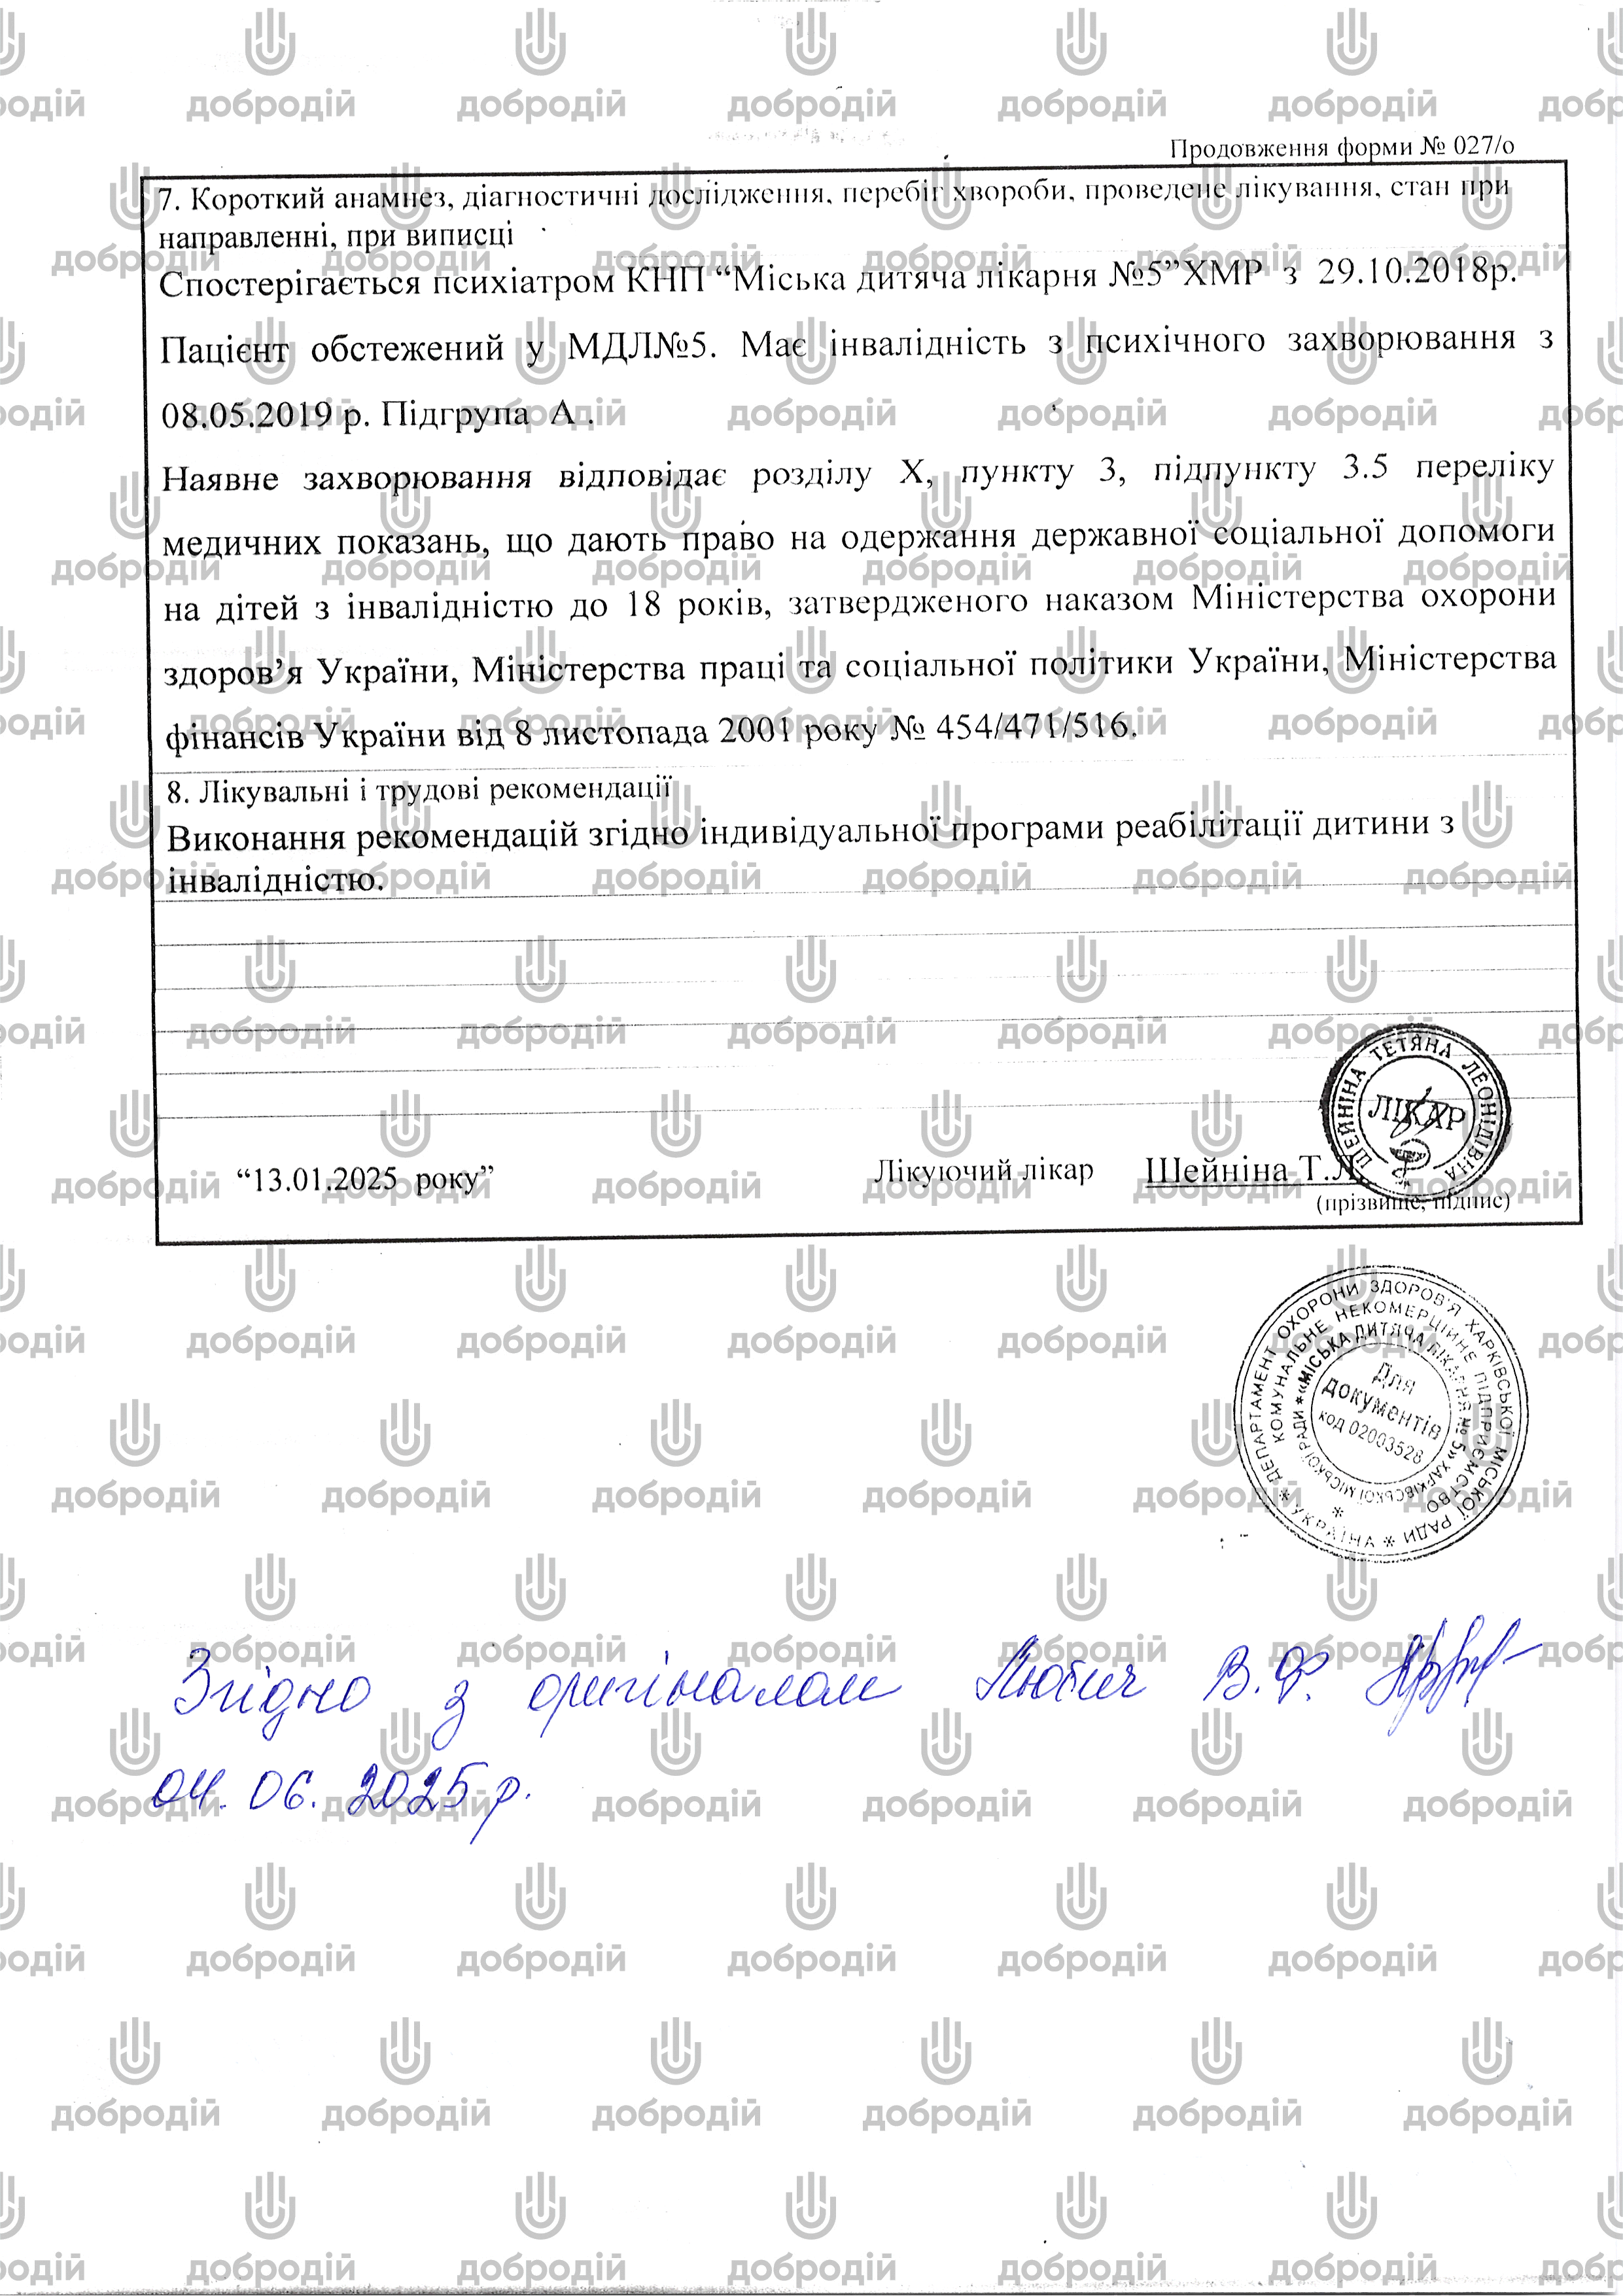 Продовження форми № 027/о
7. Короткий анамнез, діагностичні дослідження, перебіг хвороби, проведене лікування, стан при
направленні, при виписці
Спостерігається психіатром КНП “Міська дитяча лікарня №5”ХМР з 29.10.2018р.
Пацієнт обстежений у МДЛ№5. Має інвалідність з психічного захворювання з
08.05.2019 р. Підгрупа А .
Наявне захворювання відповідає розділу X, пункту 3, підпункту 3.5 переліку
медичних показань, що дають право на одержання державної соціальної допомоги
на дітей з інвалідністю до 18 років, затвердженого наказом Міністерства охорони
здоров’я України, Міністерства праці та соціальної політики України, Міністерства
фінансів України від 8 листопада 2001 року № 454/471/516.
8. Лікувальні і трудові рекомендації
Виконання рекомендацій згідно індивідуальної програми реабілітації дитини з
інвалідністю.
ШЕЙНІНА ТЕТЯНА ЛЕОНІДІВНА
ЛІКАР
“13.01.2025 року”
Лікуючий лікар Шейніна Т.Л.
(прізвище, підпис)
ДЕПАРТАМЕНТ ОХОРОНИ ЗДОРОВ'Я ХАРКІВСЬКОЇ МІСЬКОЇ РАДИ * УКРАЇНА *
КОМУНАЛЬНЕ НЕКОМЕРЦІЙНЕ ПІДПРИЄМСТВО
«МІСЬКА ДИТЯЧА ЛІКАРНЯ № 5» ХАРКІВСЬКОЇ МІСЬКОЇ РАДИ *
Для
документів
код 02003528
Згідно з оригіналом Лютич В.Ф.
04.06.2025р.
добродій